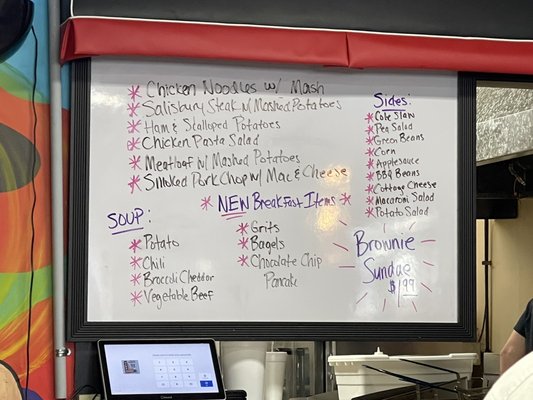 * Chicken Noodles w/ Mash
* Salisbury Steak w/ Mashed Potatoes
* Ham & Scalloped Potatoes
* Chicken Pasta Salad
* Meatloaf w/ Mashed Potatoes
* Smoked Pork Chop w/ Mac & Cheese
Sides:
* Cole Slaw
* Pea Salad
* Green Beans
* Corn
* Applesauce
* BBQ Beans
* Cottage Cheese
* Macaroni Salad
* Potato Salad
SOUP:
* Potato
* Chili
* Broccoli Cheddar
* Vegetable Beef
* NEW Breakfast Items *
* Grits
* Bagels
* Chocolate Chip
Pancake
Brownie
Sundae
$1.99